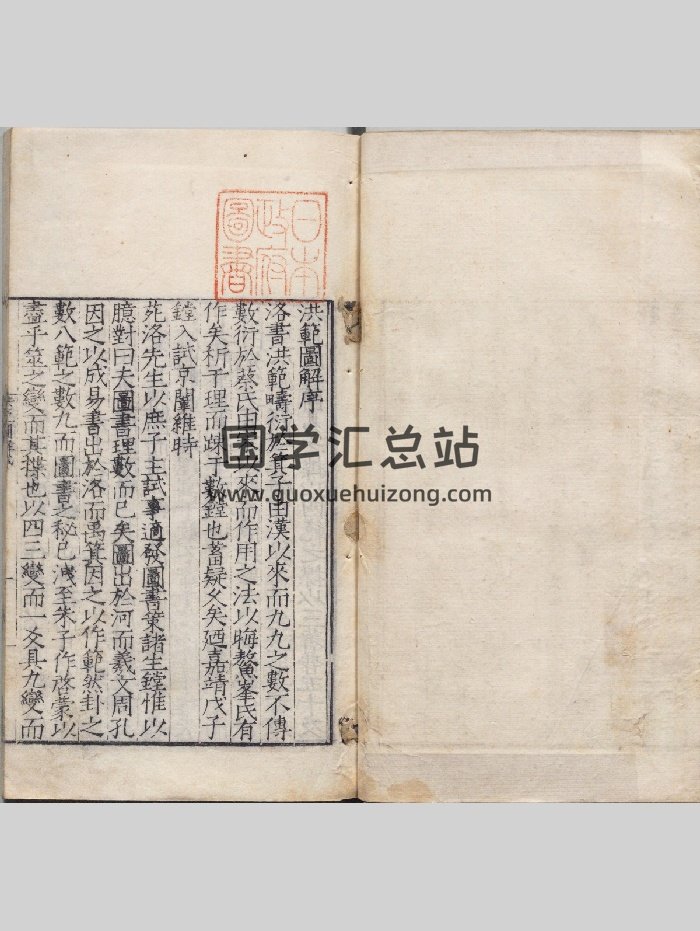 日本
政府
圖書
洪範圖解序
洛書洪範疇衍於箕子由漢以來而九九之數不傳
數衍於蔡氏由宋以來而作用之法以晦鰲峯氏有
作矣析于理而踈于數鏜也蓄疑久矣廼嘉靖戊子
鏜入試京闈維時
苑洛先生以庶子主試事適發圖書策諸生鏜惟以
臆對曰夫圖書理數而已矣圖出於河而羲文周孔
因之以成易書出於洛而禹箕因之以作範然卦之
數八範之數九而圖書之秘已洩至朱子作啓蒙以
盡乎筮之變而其揲也以四三變而一爻具九變而
国学汇总站
www.guoxuehuizong.com